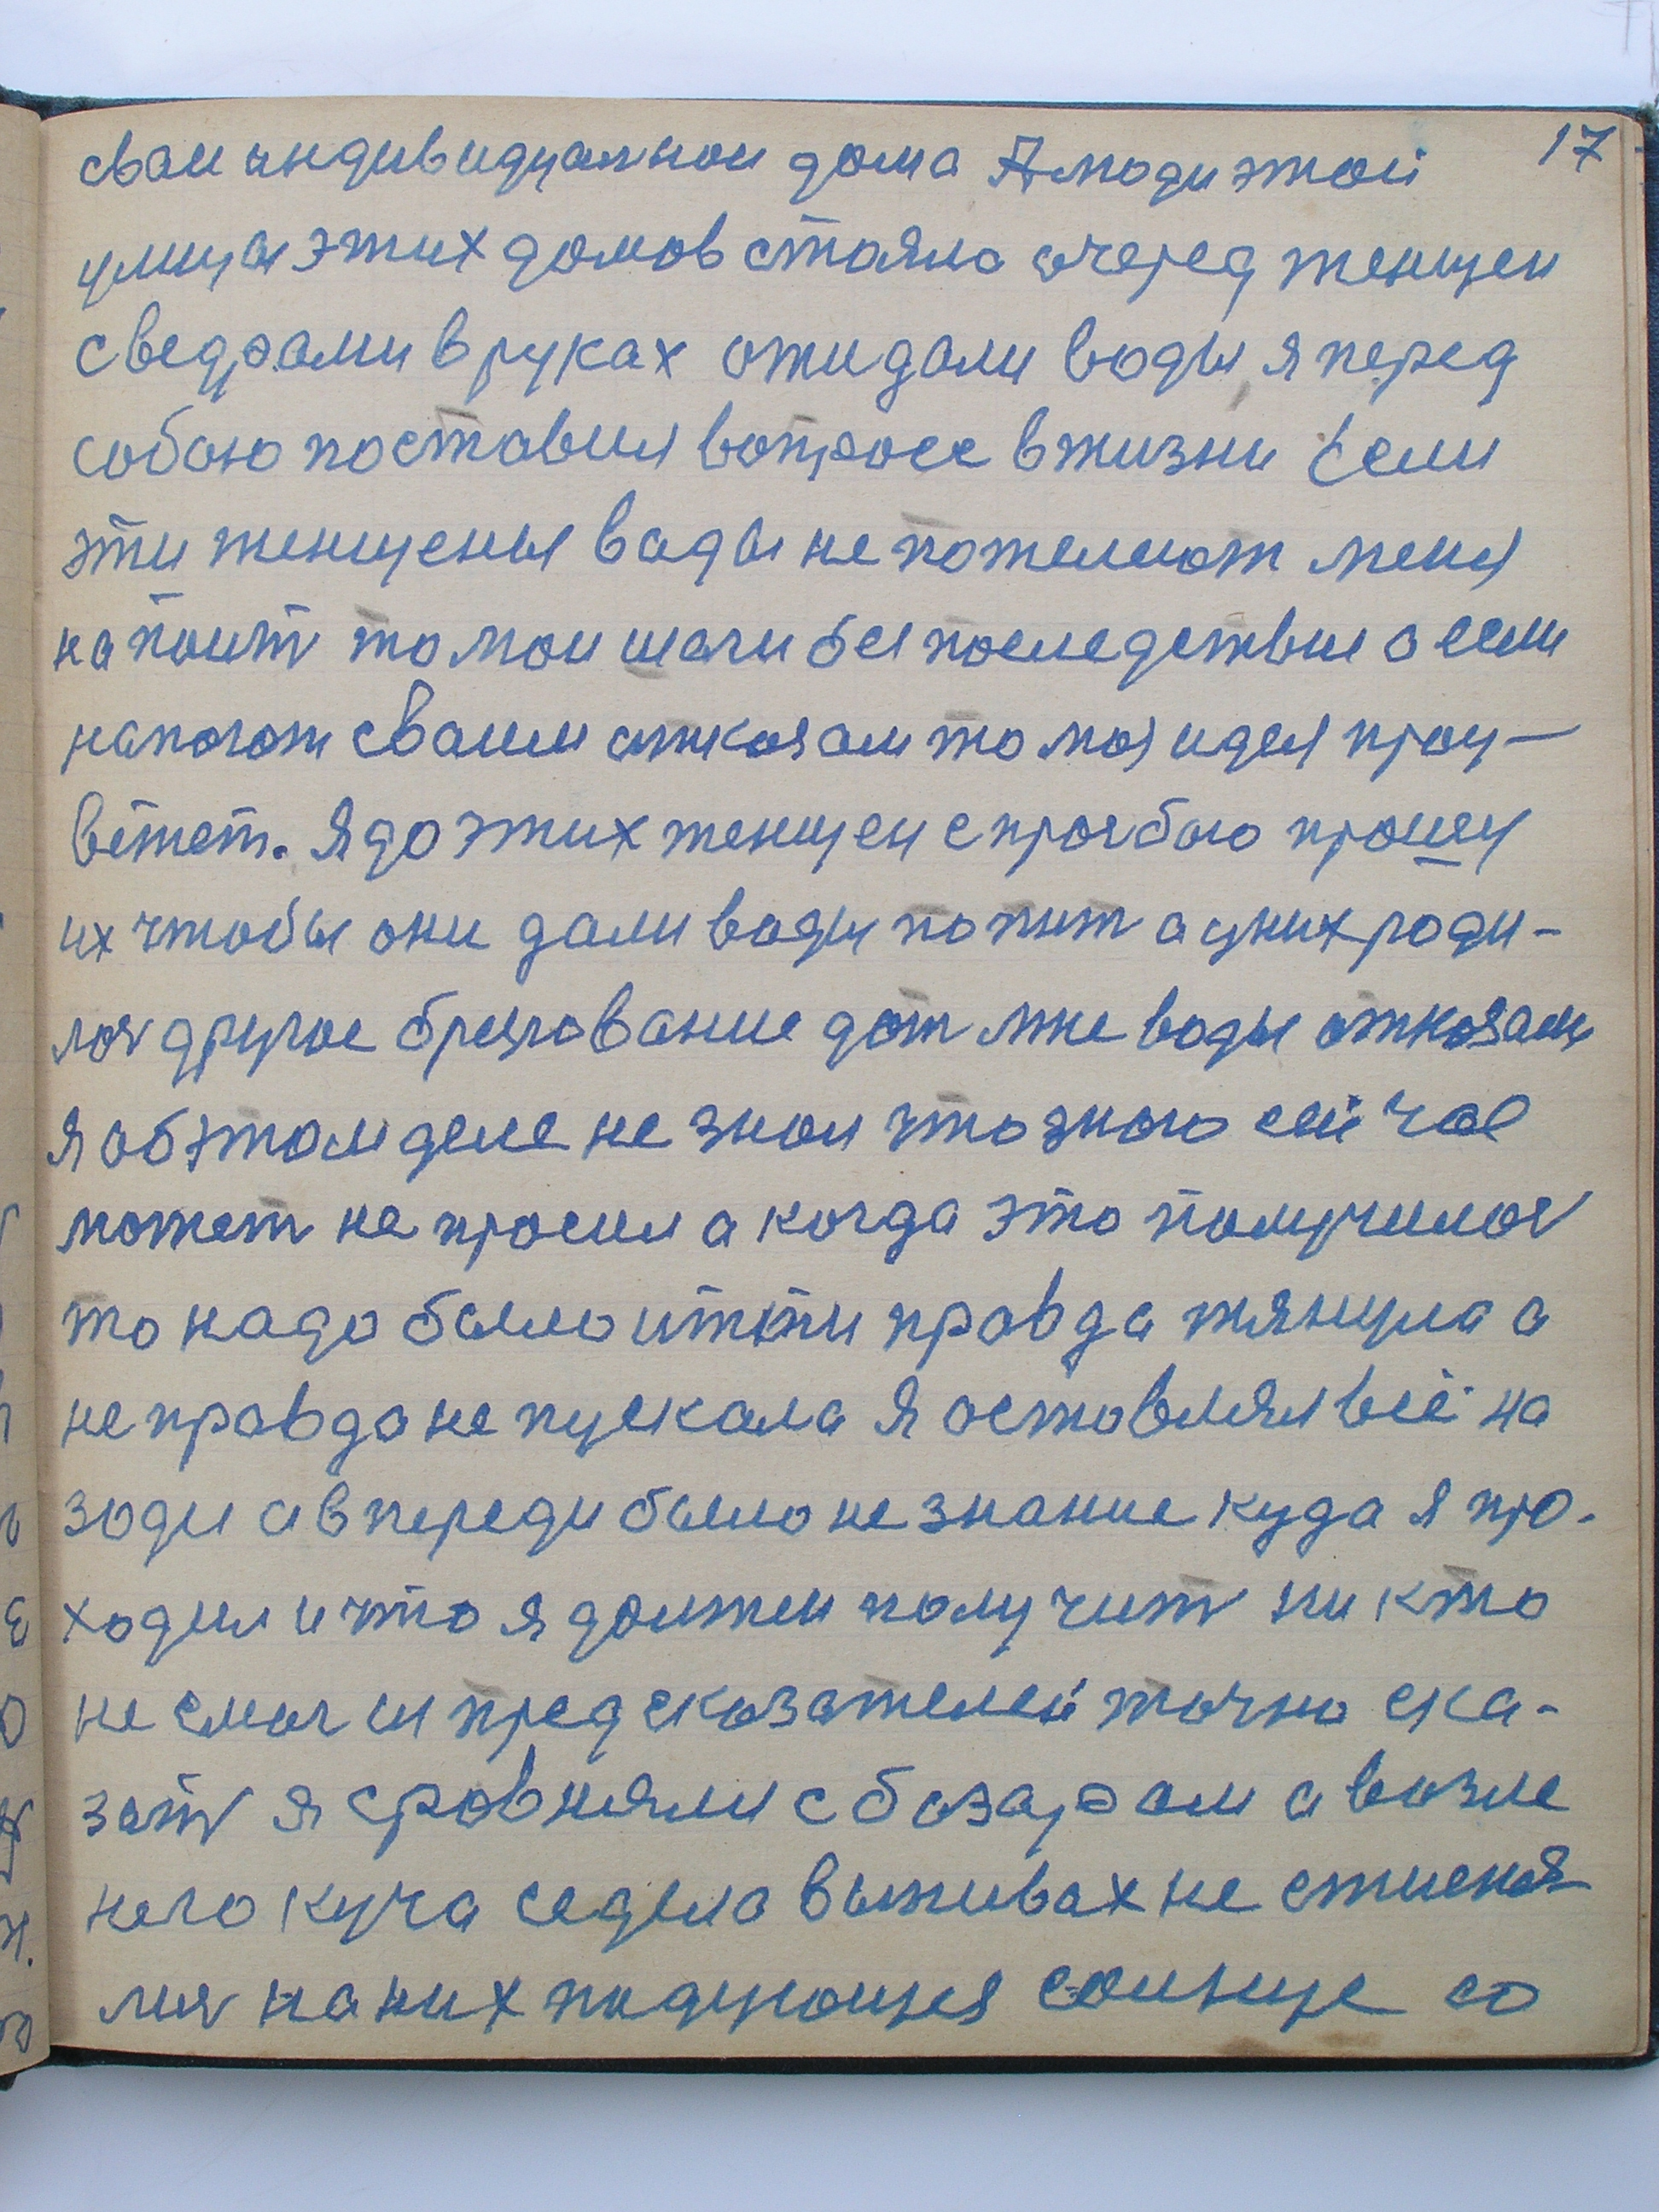 сваи индивидуалнои дома А люди этой 17
улицы этих домов стояла очеред женщен
с ведрами в руках ожидали воды я перед
собою поставил вопросс в жизни Если
эти женщены вады не пожелают меня
напоить то мои шаги без последствие а если
напоют сваим отказам то моя идея проц-
ветет. Я до этих женщен с прозбою прошу
их чтобы они дали воды попит а у них роди-
лос другое брезгование дат мне воды отказали
я об этом деле не знал что знаю сейчас
может не просил а когда это получилос
то надо было итти правда тянула а
не правда не пускала Я оставлял всё на
зади а впереди было не знание куда я про-
ходил и что я должен получит ни кто
не смог из предсказателей точно ска-
зат я сровнялся с базарам а возле
него куча седела выжывах не стиснял
лис на них падующея сонце со